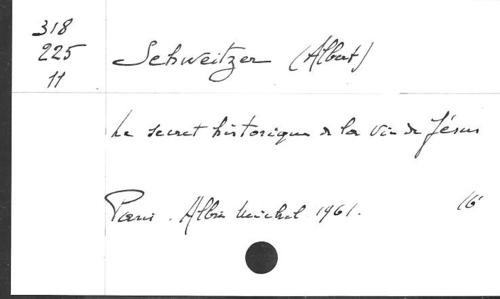 318
225
11
Schweitzer (Albert)
Le secret historique de la vie de Jésus
Paris. Albin Michel 1961. 16°